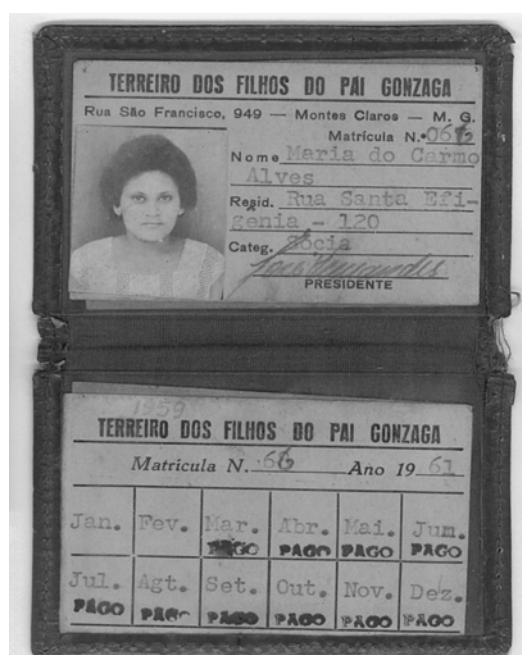 TERREIRO DOS FILHOS DO PAI GONZAGA
Rua São Francisco, 949 — Montes Claros — M. G.
Matrícula N.º
Nome Maria do Carmo
Alves
Resid. Rua Santa Efi-
gênia - 120
Categ. Sócia
PRESIDENTE
1959
TERREIRO DOS FILHOS DO PAI GONZAGA
Matrícula N. 66 Ano 19 61
Jan. Fev. Mar. Abr. Mai. Jum.
PAGO PAGO PAGO PAGO
Jul. Agt. Set. Out. Nov. Dez.
PAGO PAGO PAGO PAGO PAGO PAGO